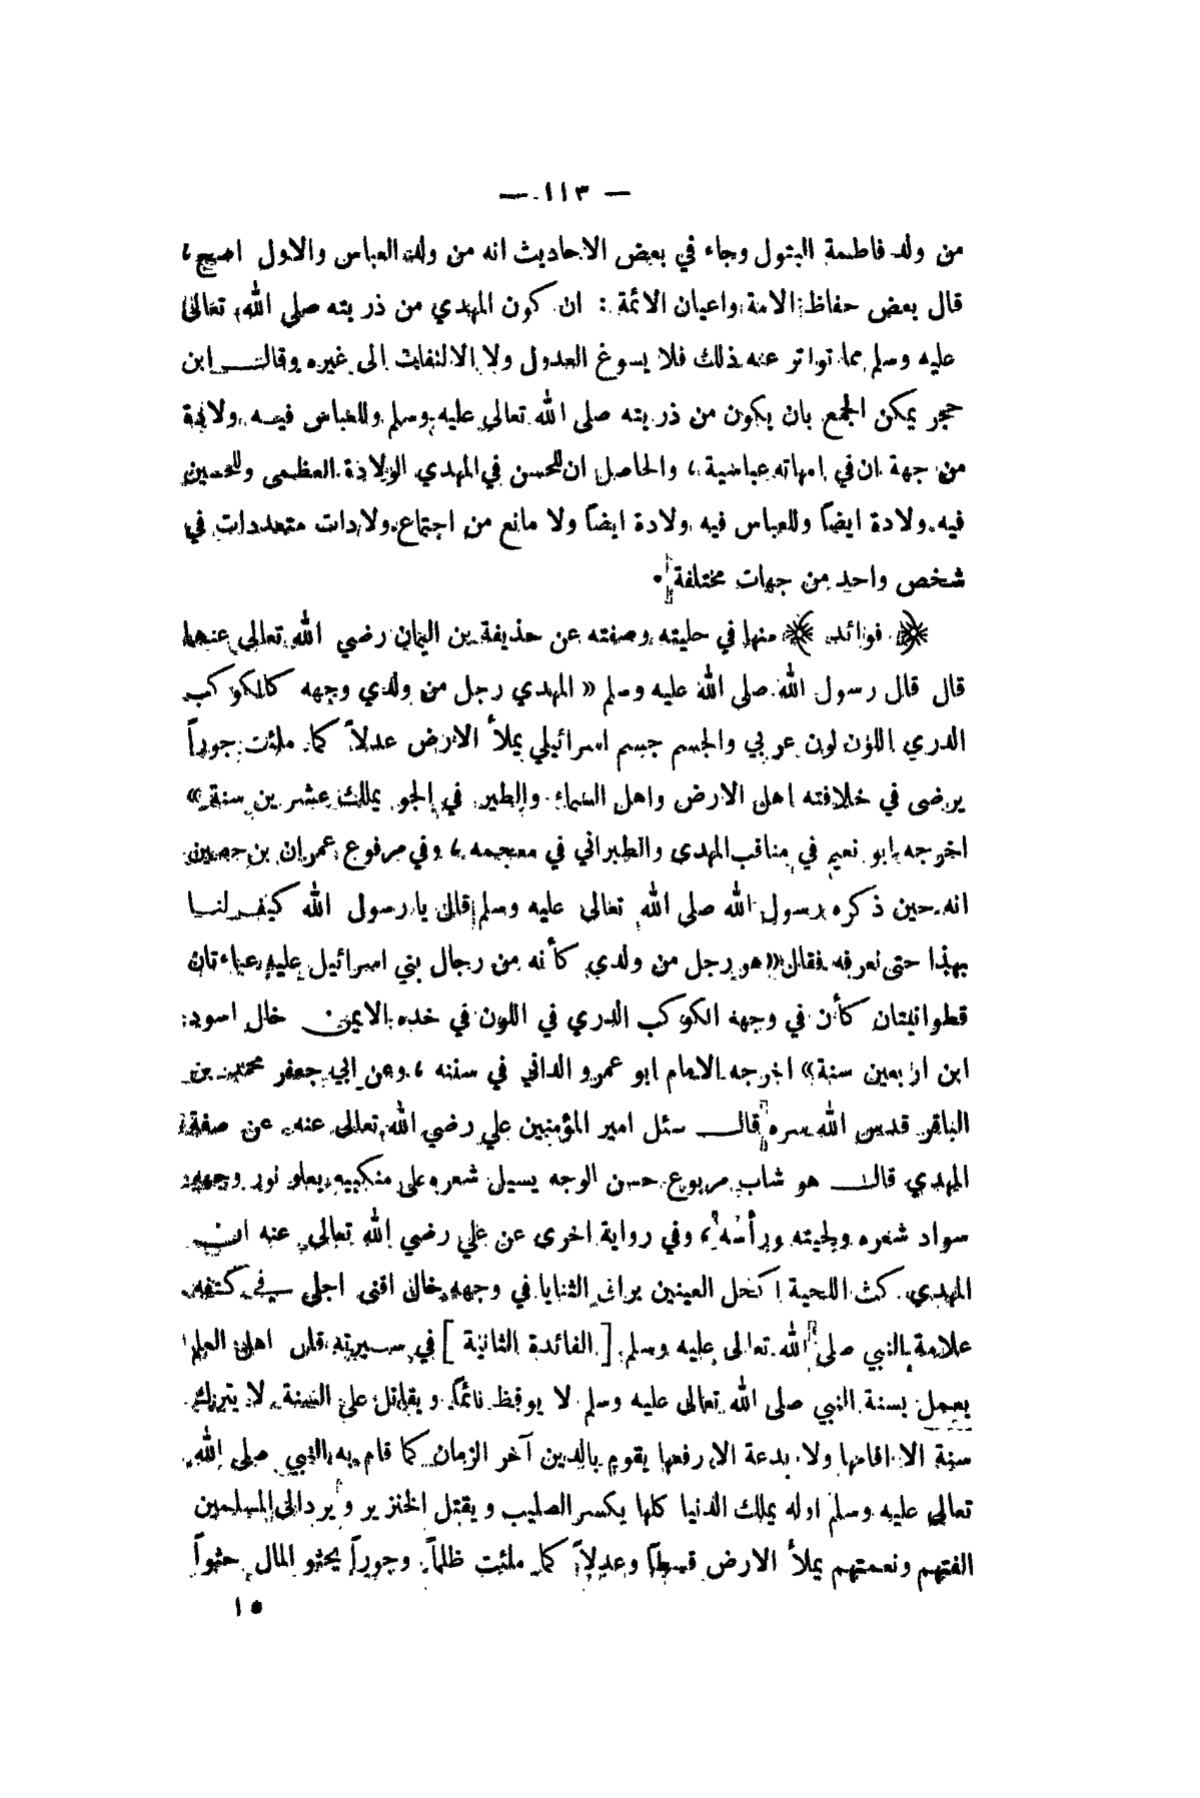 — ١١٣ —
من ولد فاطمة البتول وجاء في بعض الاحاديث انه من ولد العباس والاول اصح ،
قال بعض حفاظ الامة واعيان الائمة : ان كون المهدي من ذريته صلى الله تعالى
عليه وسلم مما تواتر عنه ذلك فلا يسوغ العدول ولا الالتفات الى غيره وقال ابن
حجر يمكن الجمع بان يكون من ذريته صلى الله تعالى عليه وسلم وللعباس فيه ولادة
من جهة ان في امهاته عباسية ، والحاصل ان للحسن في المهدي الولادة العظمى وللحسين
فيه ولادة ايضاً وللعباس فيه ولادة ايضاً ولا مانع من اجتماع ولادات متعددات في
شخص واحد من جهات مختلفة .
﴿ فوائد ﴾ منها في حليته وصفته عن حذيفة بن اليمان رضي الله تعالى عنهما
قال قال رسول الله صلى الله عليه وسلم « المهدي رجل من ولدي وجهه كالكوكب
الدري اللون لون عربي والجسم جسم اسرائيلي يملأ الارض عدلاً كما ملئت جوراً
يرضى في خلافته اهل الارض واهل السماء والطير في الجو يملك عشرين سنة »
اخرجه ابو نعيم في مناقب المهدي والطبراني في معجمه ، وفي مرفوع عمران بن حصين
انه حين ذكره رسول الله صلى الله تعالى عليه وسلم قال يا رسول الله كيف لنا
بهذا حتى نعرفه فقال « هو رجل من ولدي كأنه من رجال بني اسرائيل عليه عباءتان
قطوانيتان كأن في وجهه الكوكب الدري في اللون في خده الايمن خال اسود
ابن اربعين سنة » اخرجه الامام ابو عمرو الداني في سننه ، وعن ابي جعفر محمد بن
الباقر قدس الله سره قال سئل امير المؤمنين علي رضي الله تعالى عنه عن صفة
المهدي قال هو شاب مربوع حسن الوجه يسيل شعره على منكبيه يعلو نور وجهه
سواد شعره ولحيته ورأسه ، وفي رواية اخرى عن علي رضي الله تعالى عنه ان
المهدي كث اللحية اكحل العينين براق الثنايا في وجهه خال اقنى اجلى في كتفه
علامة النبي صلى الله تعالى عليه وسلم [ الفائدة الثانية ] في سيرته قال اهل العلم
يعمل بسنة النبي صلى الله تعالى عليه وسلم لا يوقظ نائماً ويقاتل على السنة لا يترك
سنة الا اقامها ولا بدعة الا رفعها يقوم بالدين آخر الزمان كما قام به النبي صلى الله
تعالى عليه وسلم اوله يملك الدنيا كلها يكسر الصليب ويقتل الخنزير ويرد الى المسلمين
الفتهم ونعمتهم يملأ الارض قسطاً وعدلاً كما ملئت ظلماً وجوراً يحثو المال حثواً
١٥